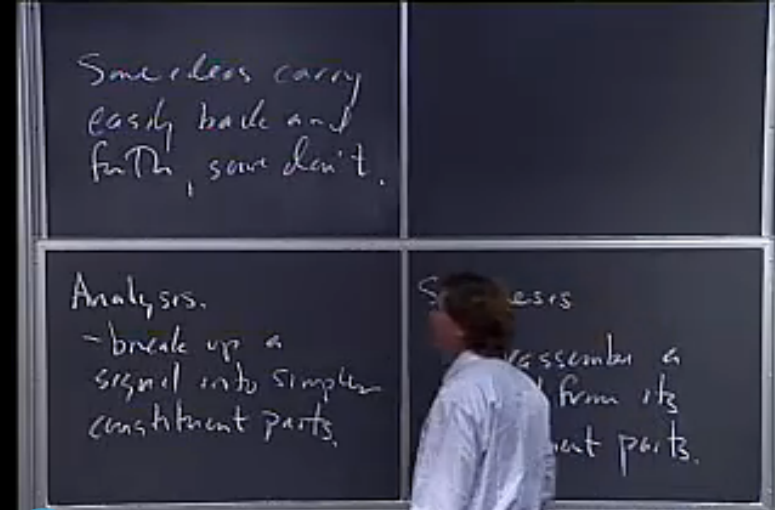 Some ideas carry
easily back and
forth, some don't.
Analysis.
- break up a
signal into simpler
constituent parts.
from its
parts.